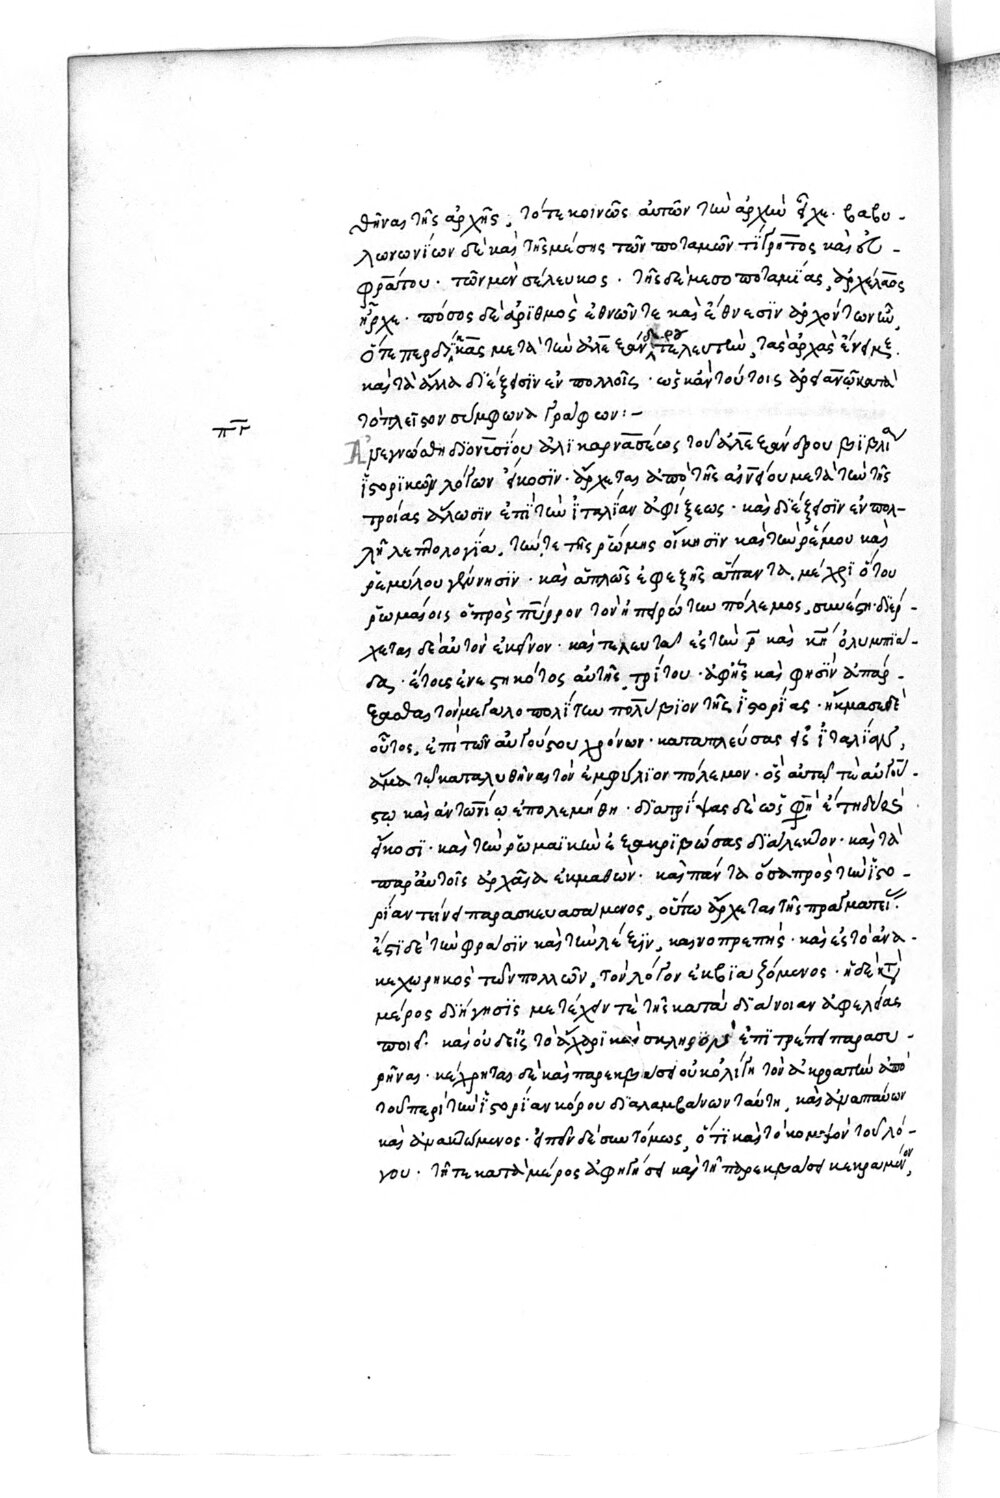 θῆναι τῆς ἀρχῆς, τότε κοινῶς αὐτῶν τὴν ἀρχὴν εἶχε. βαβυ-
λωνωνίων δὲ καὶ τῆς μέσης τῶν ποταμῶν τίγρητος καὶ εὐ-
φράτου. τῶν μὲν σέλευκος. τῆς δὲ μεσοποταμίας, ἀρχέλαος
ἦρχε. πόσος δὲ ἀριθμὸς ἐθνῶν τε καὶ ἔθνεσιν ἀρχόντων ὧν,
ὅτε περδίκκας μετὰ τὴν ἀλεξάνδρου τελευτὴν, τὰς ἀρχὰς ἔνειμε.
καὶ τὰ ἄλλα διέξεισιν ἐν πολλοῖς. ὡς κἀν τούτοις ἀρριανῷ κατὰ
τὸ πλεῖστον σύμφωνα γράφων:-
πγ
Ἀνεγνώσθη διονυσίου ἀλικαρνασέως τοῦ ἀλεξάνδρου βιβλία
ἱστορικῶν λόγων εἴκοσιν. ἄρχεται ἀπὸ τῆς αἰνείου μετὰ τὴν τῆς
τροίας ἅλωσιν ἐπὶ τὴν ἰταλίαν ἀφίξεως. καὶ διέξεισιν ἐν πολ-
λῇ λεπτολογίᾳ, τήν τε τῆς ῥώμης οἴκησιν καὶ τὴν ῥέμου καὶ
ῥεμύλου γέννησιν. καὶ ἁπλῶς ἐφεξῆς ἅπαντα, μέχρι ὅτου
ῥωμαίοις ὁ πρὸς πύρρον τὸν ἠπειρώτην πόλεμος, συνέστη. διέρ-
χεται δὲ αὐτὸν ἐκεῖνον. καὶ τελευτᾷ ἐς τὴν ρ καὶ κη ὀλυμπιά-
δα. ἔτους ἐνεστηκότος αὐτῆς, τρίτου. ἀφ' ἧς καὶ φησὶν ἀπάρ-
ξασθαι τὸν μεγαλοπολίτην πολύβιον τῆς ἱστορίας. ἤκμασε δὲ
οὗτος, ἐπὶ τῶν αὐγούστου χρόνων. καταπλεύσας εἰς ἰταλίαν,
ἅμα τῷ καταλυθῆναι τὸν ἐμφύλιον πόλεμον. ὃς αὐτῷ τῷ αὐγού-
στῳ καὶ ἀντωνίῳ ἐπολεμήθη. διατρίψας δὲ ὥς φησὶ ἔτη δύο καὶ
εἴκοσι. καὶ τὴν ῥωμαϊκὴν ἐξακριβώσας διάλεκτον. καὶ τὰ
παρ' αὐτοῖς ἀρχαῖα ἐκμαθών. καὶ πάντα ὅσα πρὸς τὴν ἱστο-
ρίαν τείνει παρασκευασάμενος, οὕτω ἄρχεται τῆς πραγματείας.
ἔστι δὲ τὴν φράσιν καὶ τὴν λέξιν, καινοπρεπής. καὶ ἐς τὸ ἀνα-
κεχωρηκὸς τῶν πολλῶν, τὸν λόγον ἐκβιαζόμενος. ἡ δὲ κατὰ
μέρος διήγησις μετέχειν τε τῆς κατὰ διάνοιαν ἀφελείας
ποιεῖ. καὶ οὐδ' εἰς τὸ ἄχαρι καὶ σκληρὸν ἐπιτρέπει παρασυ-
ρῆναι. κέχρηται δὲ καὶ παρεκβάσει οὐκ ὀλίγῃ τὸν ἀκροατὴν ἀπὸ
τοῦ περὶ τὴν ἱστορίαν κόρου διαλαμβάνων ταύτῃ, καὶ ἀναπαύων
καὶ ἀνακτώμενος. εἰπεῖν δὲ συντόμως, ὅτι καὶ τὸ κομψὸν τοῦ λό-
γου. τῇ τε κατὰ μέρος ἀφηγήσει καὶ τῇ παρεκβάσει κεκραμένον,